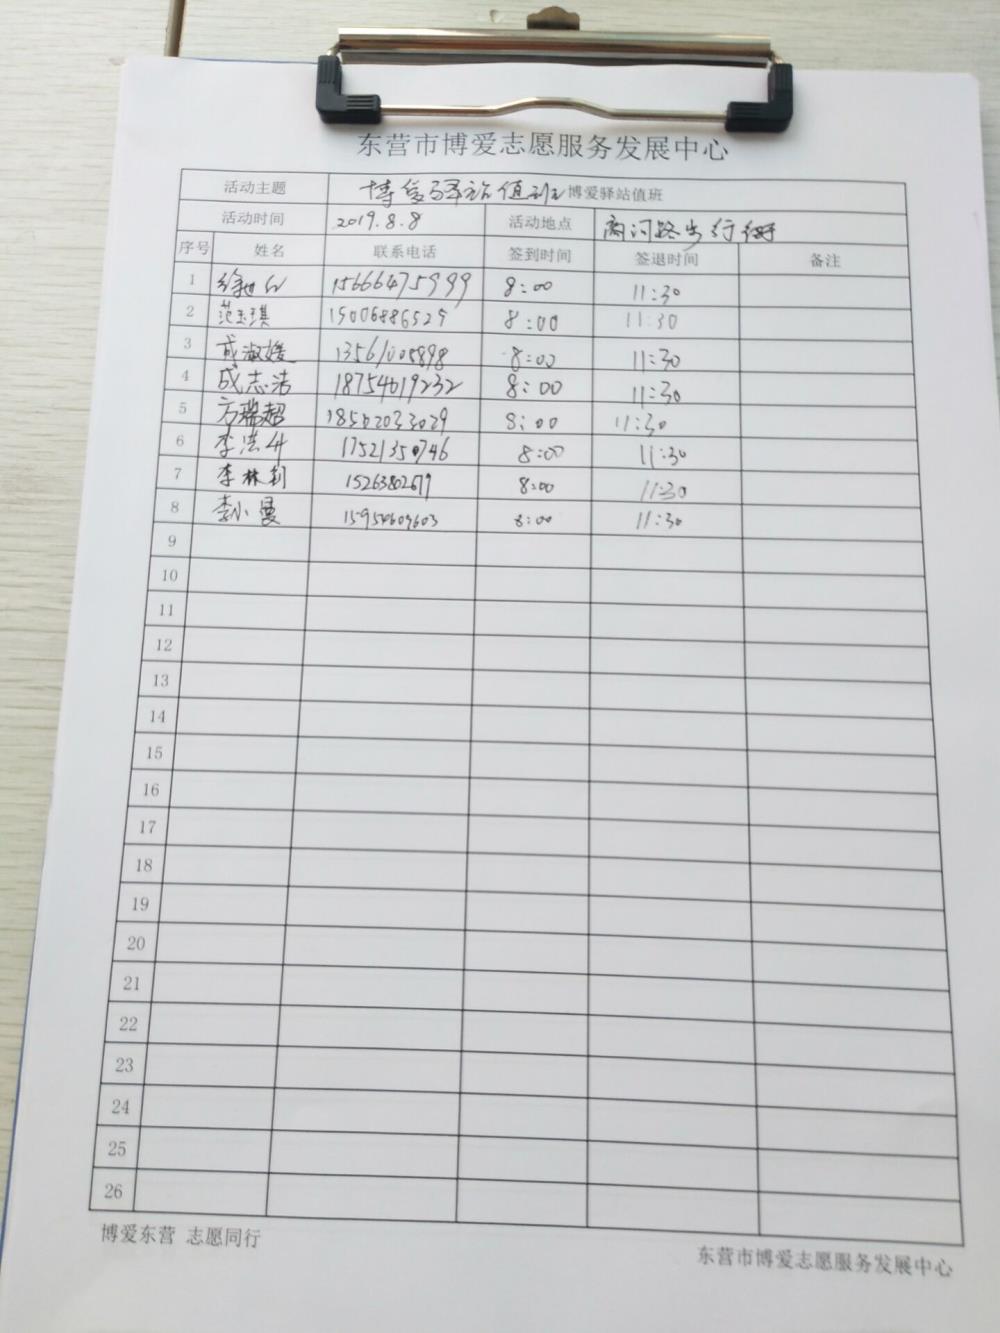 东营市博爱志愿服务发展中心
活动主题 博爱驿站值班 博爱驿站值班
活动时间 2019.8.8 活动地点 商河路步行街
序号 姓名 联系电话 签到时间 签退时间 备注
1 15666475999 8:00 11:30
2 范玉琪 15006886529 8:00 11:30
3 淑媛 13561005898 8:00 11:30
4 成志洁 18754619232 8:00 11:30
5 方瑞超 18502033029 8:00 11:30
6 李浩升 17521350746 8:00 11:30
7 李林莉 15263802677 8:00 11:30
8 李小曼 15954609603 8:00 11:30
9
10
11
12
13
14
15
16
17
18
19
20
21
22
23
24
25
26
博爱东营 志愿同行
东营市博爱志愿服务发展中心